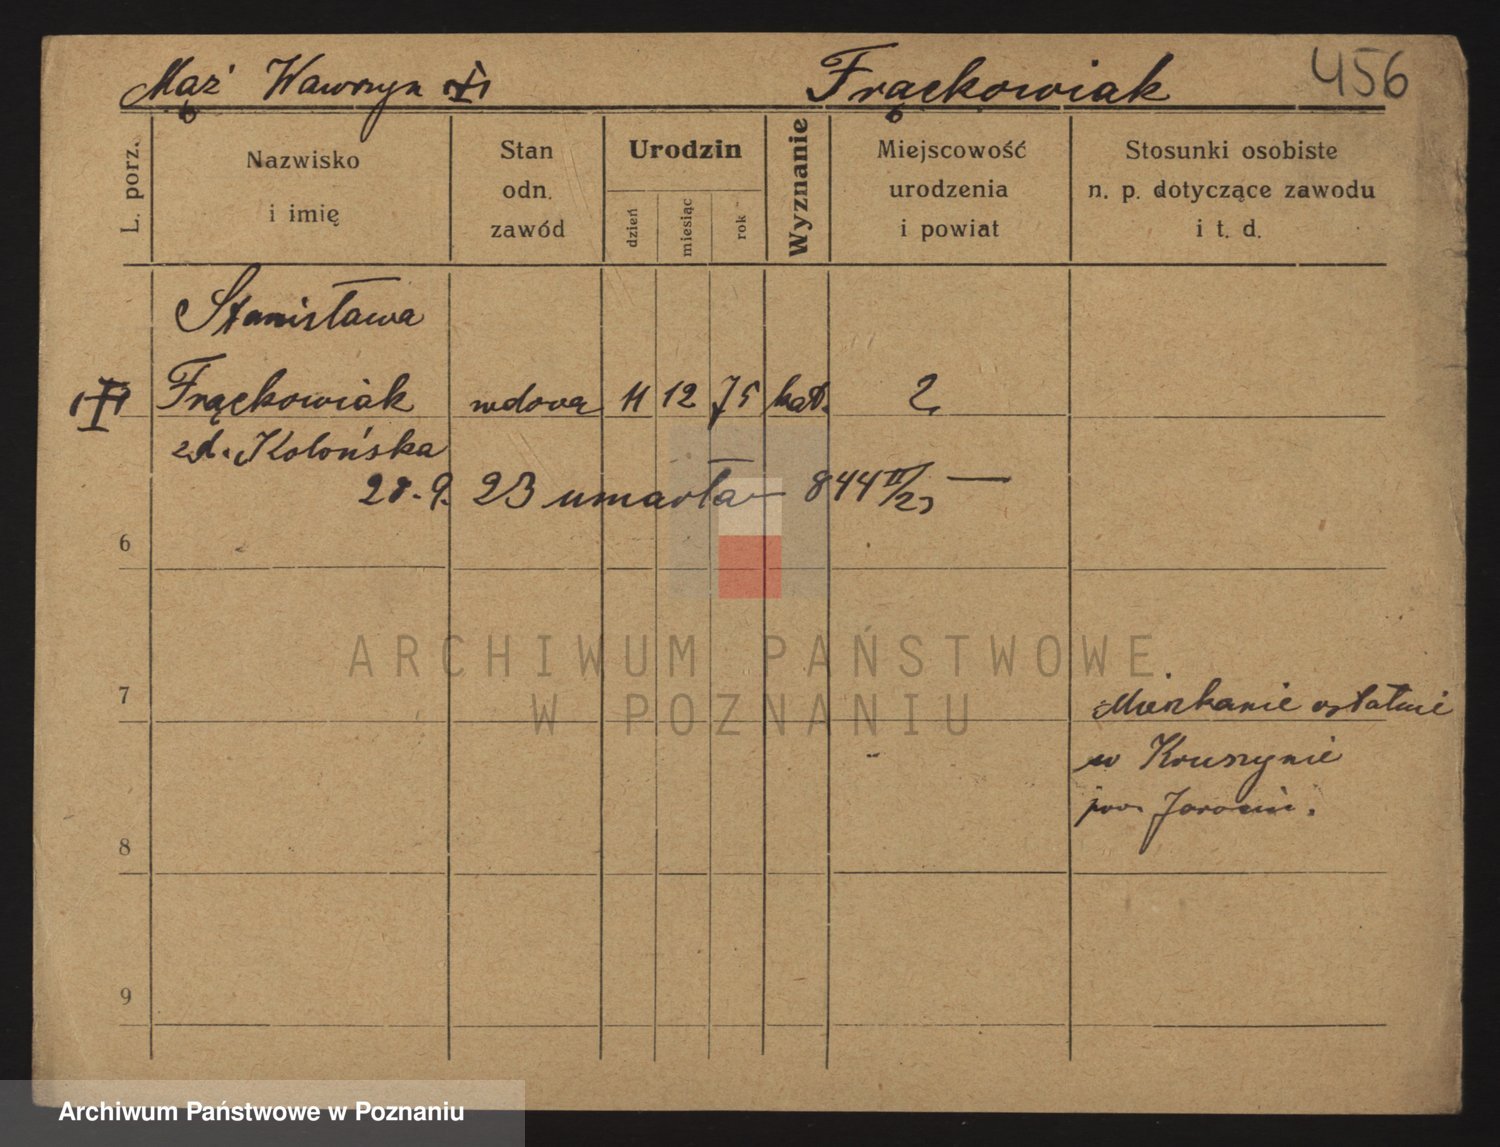 Mąż Wawrzyn
Frąckowiak
456
L. porz.
Nazwisko
i imię
Stan
odn.
zawód
Urodzin
dzień
miesiąc
rok
Wyznanie
Miejscowość
urodzenia
i powiat
Stosunki osobiste
n. p. dotyczące zawodu
i t. d.
Stanisława
Frąckowiak wdowa 11 12 75 kat. ?
zd. Kolońska
28.9. 23 umarła 844 II/23 —
6
7
Mieszkanie ostatnie
w Kruszynie
pow Jarocin.
8
9
ARCHIWUM PAŃSTWOWE
W POZNANIU
Archiwum Państwowe w Poznaniu